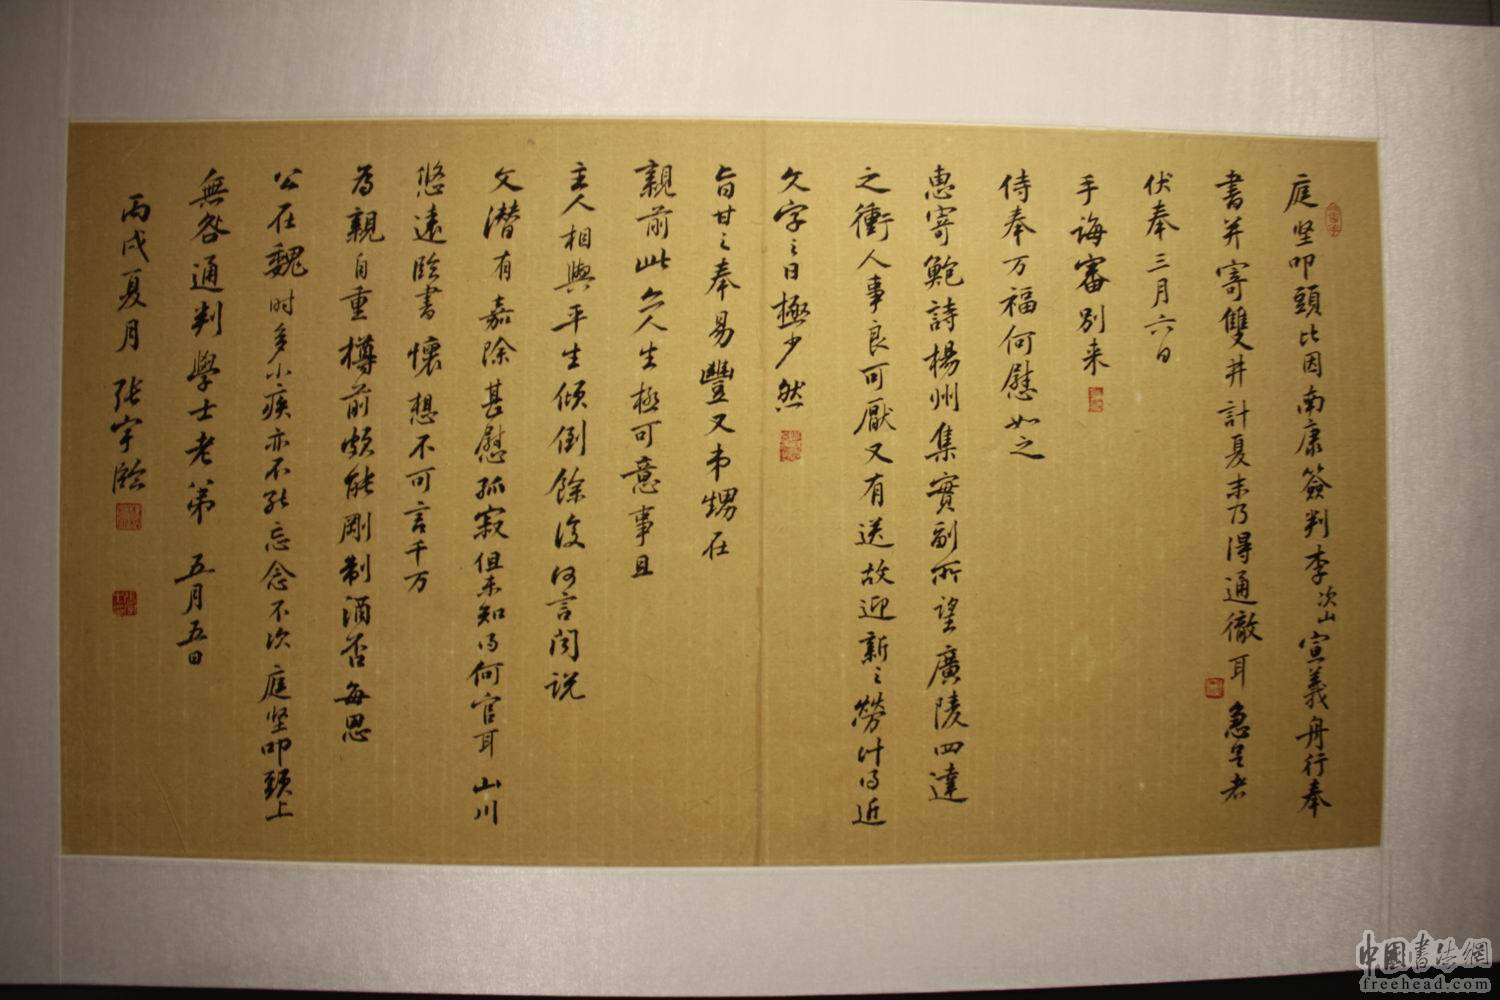 庭坚叩頭比因南康簽判李次山宣義舟行奉
書并寄雙井計夏末乃得通徹耳急足者
伏奉三月六日
手誨審别来
侍奉万福何慰如之
惠寄鮑詩楊州集實副所望廣陵四達
之衝人事良可厭又有送故迎新之勞計得近
文字之日極少然
旨甘之奉易豐又弟甥在
親前此亦人生極可意事且
主人相與平生傾倒餘復何言聞说
文潜有嘉除甚慰孤寂但未知得何官耳山川
悠遠臨書懷想不可言千万
为親自重樽前頗能剛制酒否每思
公在魏时多小疾亦不能忘念不次庭坚叩頭上
無咎通判學士老弟 五月五日
丙戌夏月 张宇臨
中國書法網
freehead.com